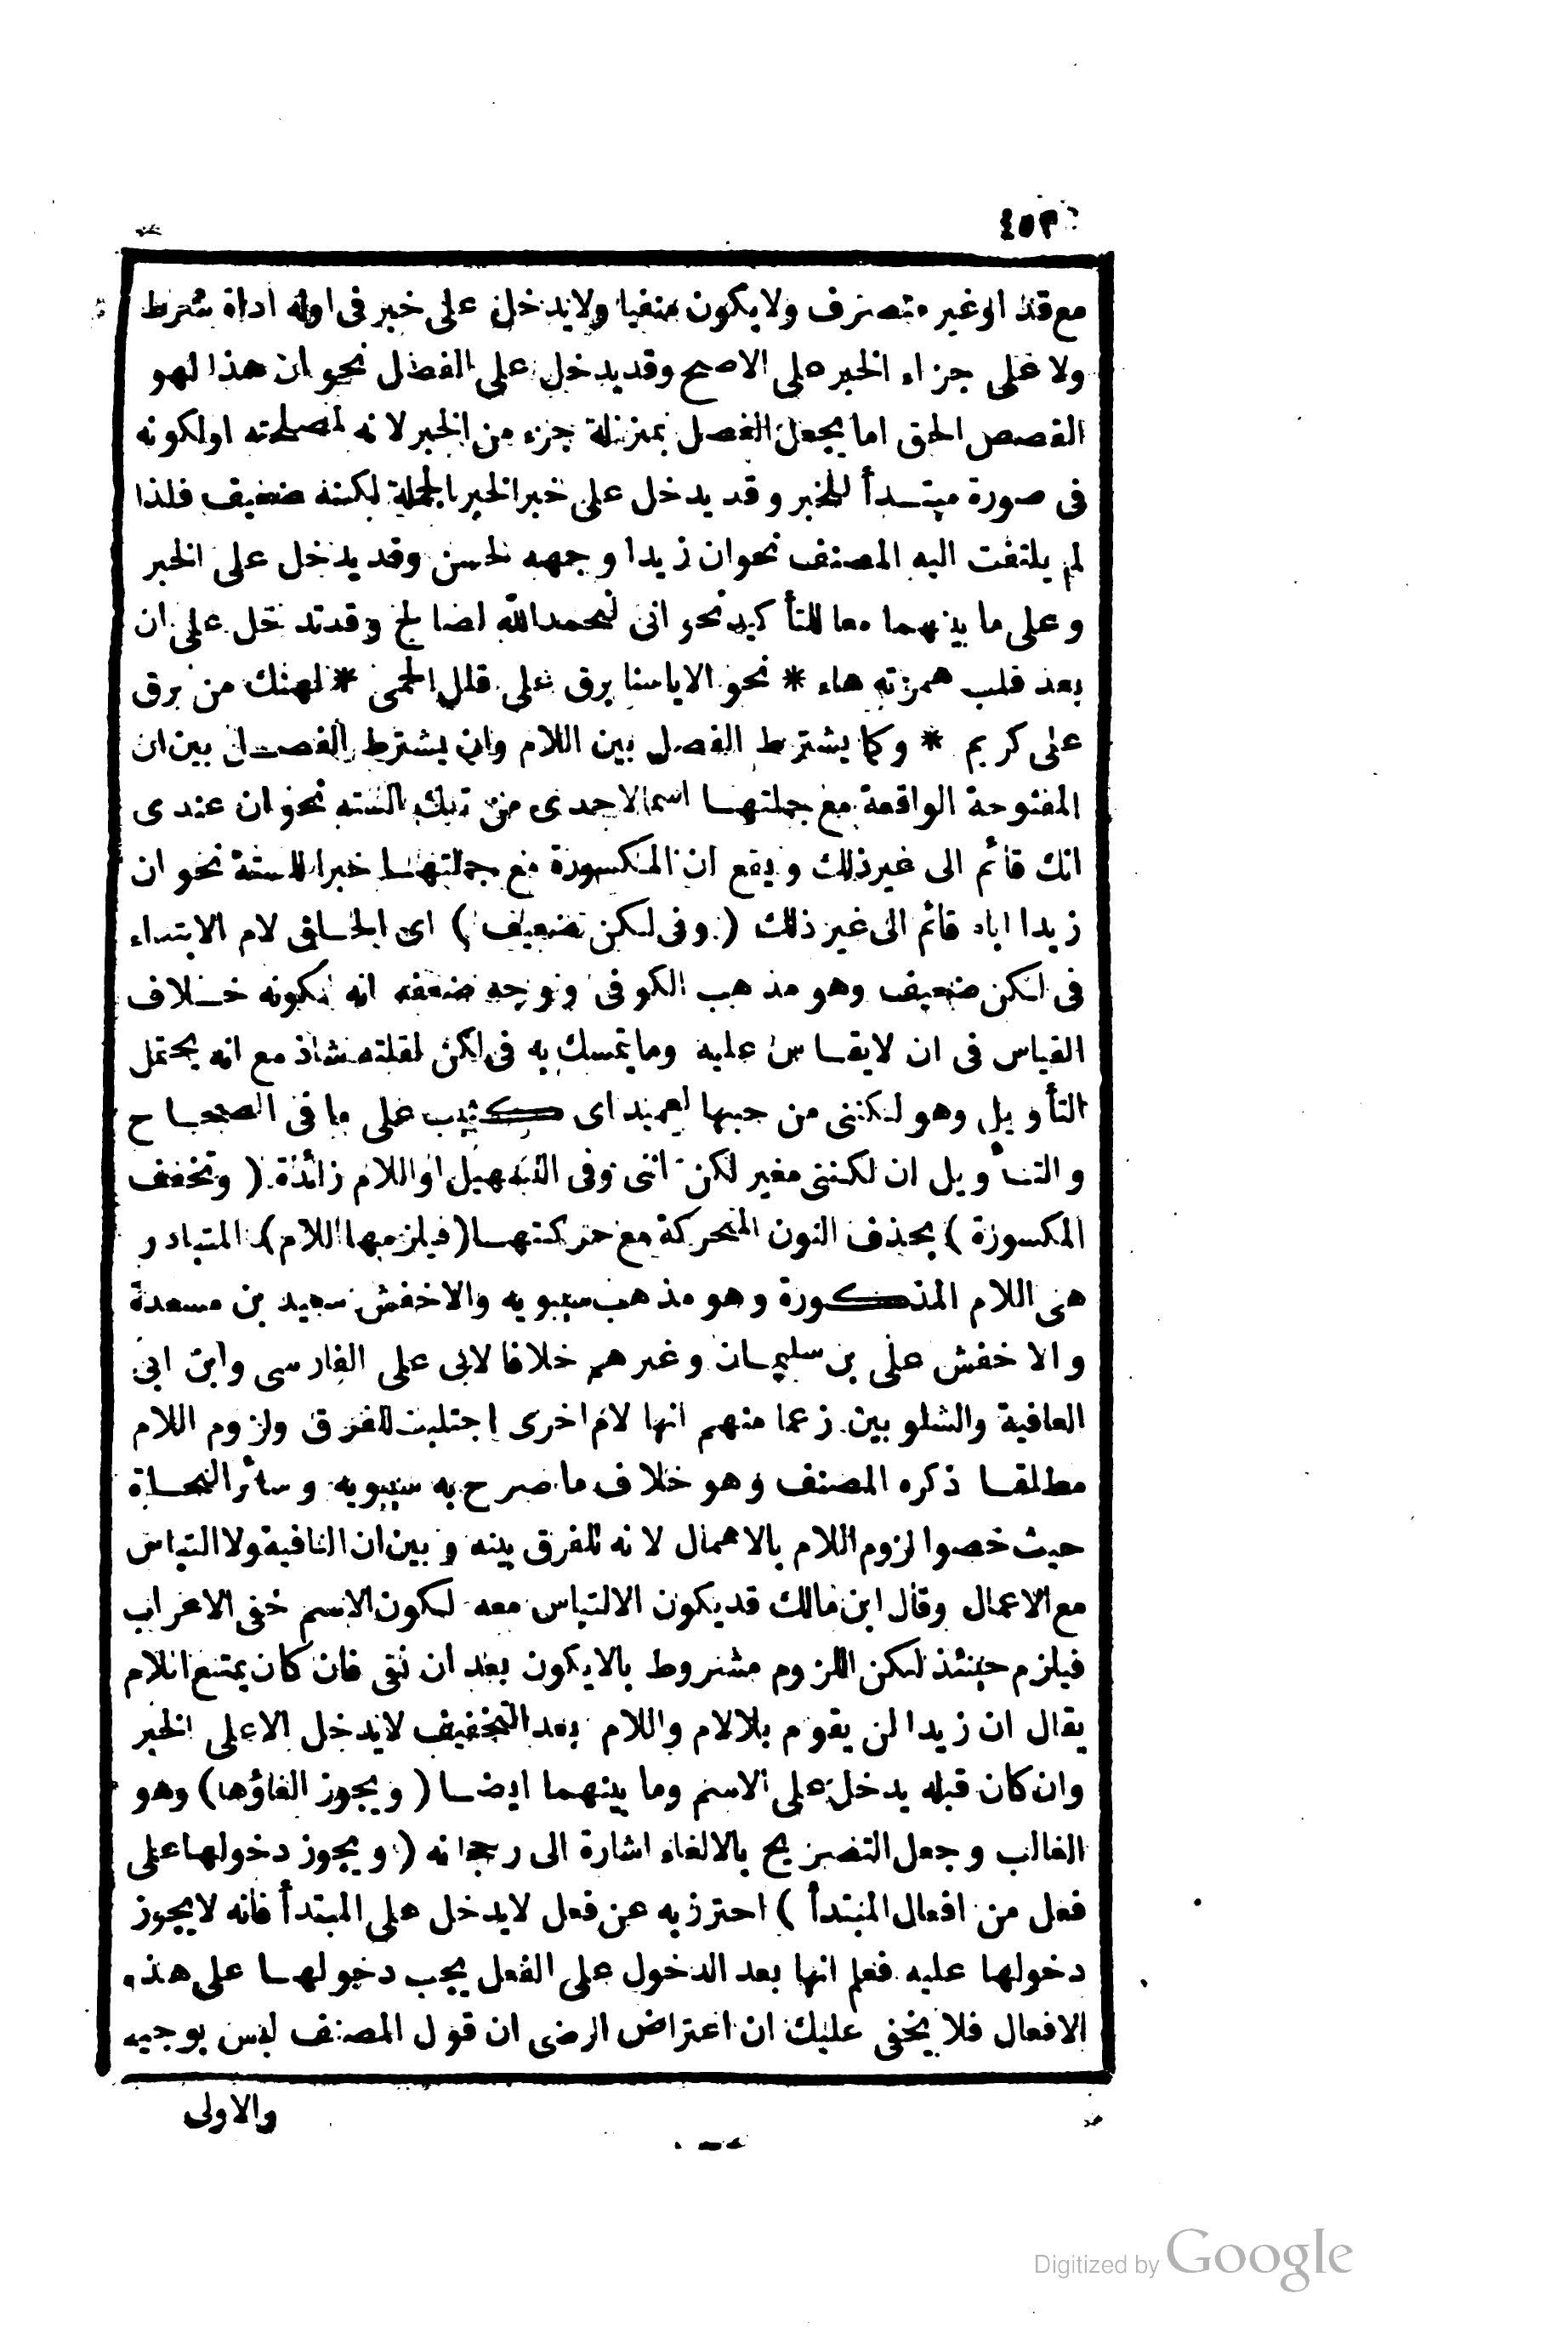 ٤٥٣
مع قد او غير متصرف ولا يكون منفيا ولا يدخل على خبر فى اوله اداة شرط
ولا على جزاء الخبر على الاصح وقد يدخل على الفصل نحو ان هذا لهو
القصص الحق اما يجعل الفصل بمنزلة جزء من الخبر لانه لمصلحته او لكونه
فى صورة مبتدأ للخبر وقد يدخل على خبر الخبر الجملة لكنه ضعيف فلذا
لم يلتفت اليه المصنف نحو ان زيدا وجهه لحسن وقد يدخل على الخبر
وعلى ما بينهما معا للتأكيد نحو انى لبحمد الله لصالح وقد تدخل على ان
بعد قلب همزته هاء * نحو الا ياسنا برق على قلل الحمى * لهنك من برق
على كريم * وكما يشترط الفصل بين اللام وان يشترط الفصل بين ان
المفتوحة الواقعة مع جملتها اسما لاحدى من تلك الستة نحو ان عندى
انك قائم الى غير ذلك ويقع ان المكسورة مع جملتها خبرا للستة نحو ان
زيدا اباه قائم الى غير ذلك ( وفى لكن ضعيف ) اى الحاق لام الابتداء
فى لكن ضعيف وهو مذهب الكوفى ووجه ضعفه انه لكونه خلاف
القياس فى ان لا يقاس عليه وما تمسك به فى لكن لقلته شاذ مع انه يحتمل
التأويل وهو لكننى من حبها لعميد اى كئيب على ما فى الصحاح
والتأويل ان لكننى مغير لكن اننى وفى التسهيل او اللام زائدة ( وتخفف
المكسورة ) بحذف النون المتحركة مع حركتها ( فيلزمها اللام ) المتبادر
هى اللام المذكورة وهو مذهب سيبويه والاخفش سعيد بن مسعدة
والاخفش على بن سليمان وغيرهم خلافا لابى على الفارسى وابن ابى
العافية والشلوبين زعما منهم انها لام اخرى اجتلبت للفرق ولزوم اللام
مطلقا ذكره المصنف وهو خلاف ما صرح به سيبويه وسائر النحاة
حيث خصوا لزوم اللام بالاهمال لانه للفرق بينه وبين ان النافية ولا التباس
مع الاعمال وقال ابن مالك قد يكون الالتباس معه لكون الاسم خفى الاعراب
فيلزم حينئذ لكن اللزوم مشروط بالا يكون بعد ان نفى فان كان يمتنع اللام
يقال ان زيدا لن يقوم بلا لام واللام بعد التخفيف لا يدخل الا على الخبر
وان كان قبله يدخل على الاسم وما بينهما ايضا ( ويجوز الغاؤها ) وهو
الغالب وجعل التصريح بالالغاء اشارة الى رجحانه ( ويجوز دخولها على
فعل من افعال المبتدأ ) احترز به عن فعل لا يدخل على المبتدأ فانه لا يجوز
دخولها عليه فعلم انها بعد الدخول على الفعل يجب دخولها على هذه
الافعال فلا يخفى عليك ان اعتراض الرضى ان قول المصنف ليس بوجيه
والاولى
Digitized by Google